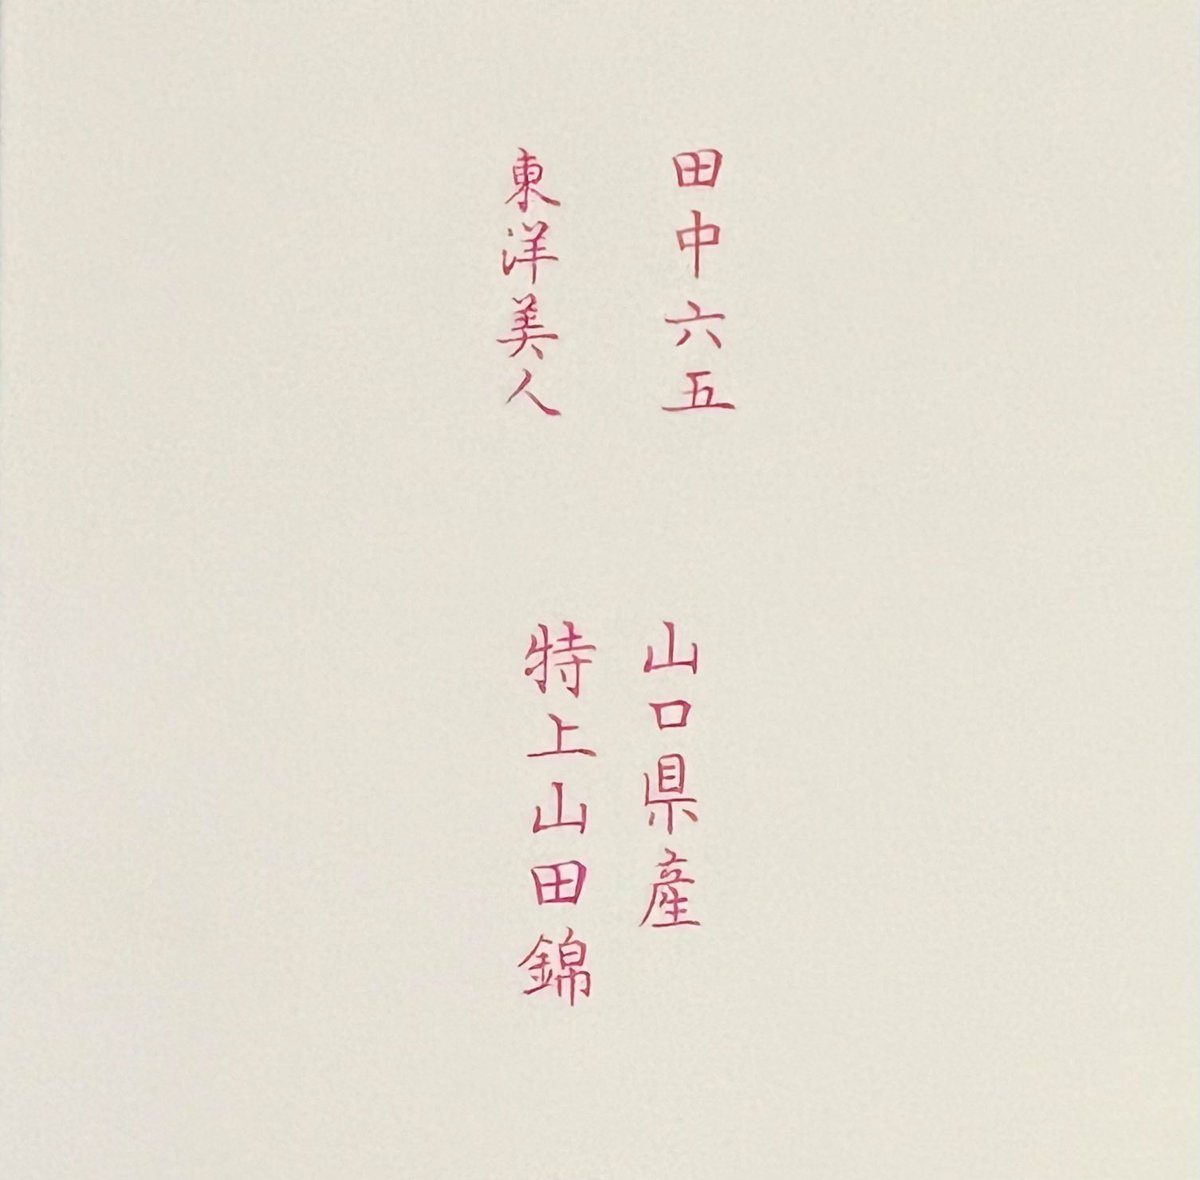 田中六五
東洋美人
山口県産
特上山田錦